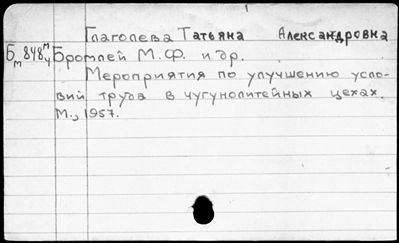 Глаголева Татьяна Александровна
Бромлей М.Ф. и др.
Мероприятия по улучшению усло-
вий труда в чугунолитейных цехах.
М., 1957.